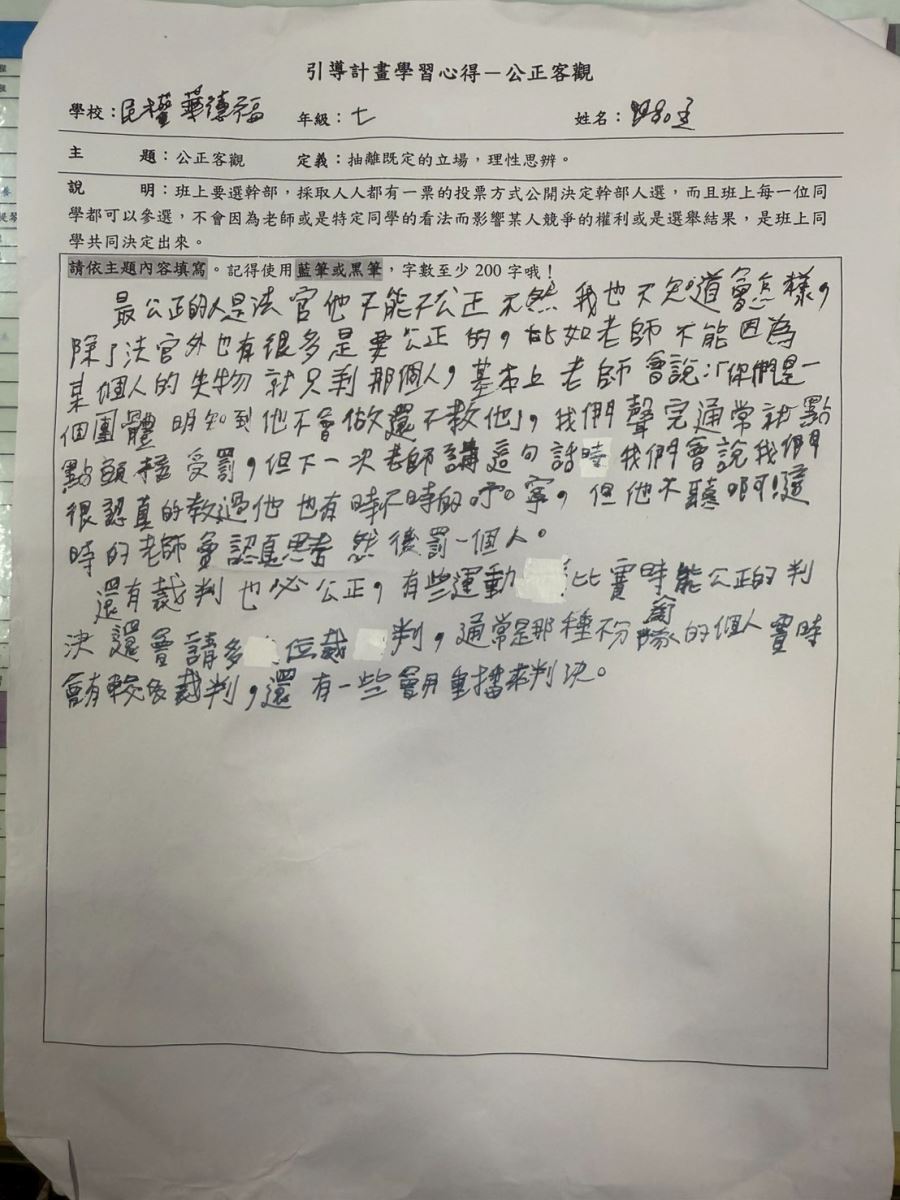 引導計畫學習心得－公正客觀
學校：民權華德福 年級：七 姓名：
主 題：公正客觀 定義：抽離既定的立場，理性思辨。
說 明：班上要選幹部，採取人人都有一票的投票方式公開決定幹部人選，而且班上每一位同
學都可以參選，不會因為老師或是特定同學的看法而影響某人競爭的權利或是選舉結果，是班上同
學共同決定出來。
請依主題內容填寫。記得使用藍筆或黑筆，字數至少 200 字哦！
最公正的人是法官他不能不公正不然我也不知道會怎樣，
除了法官外也有很多是要公正的，比如老師不能因為
某個人的失物就只剩那個人，基本上老師會說：「你們是一
個團體明知到他不會做還不教他」，我們聲完通常就點
點頭接受罰，但下一次老師講這句話時我們會說我們
很認真的教過他也有時不時的叮嚀，但他不聽啊！這
時的老師會認真思考然後罰一個人。
還有裁判也必公正，有些運動比賽時能公正的判
決還會請多位裁判，通常是那種不分隊的個人賽時
會有較多裁判，還有一些會用重播來判決。